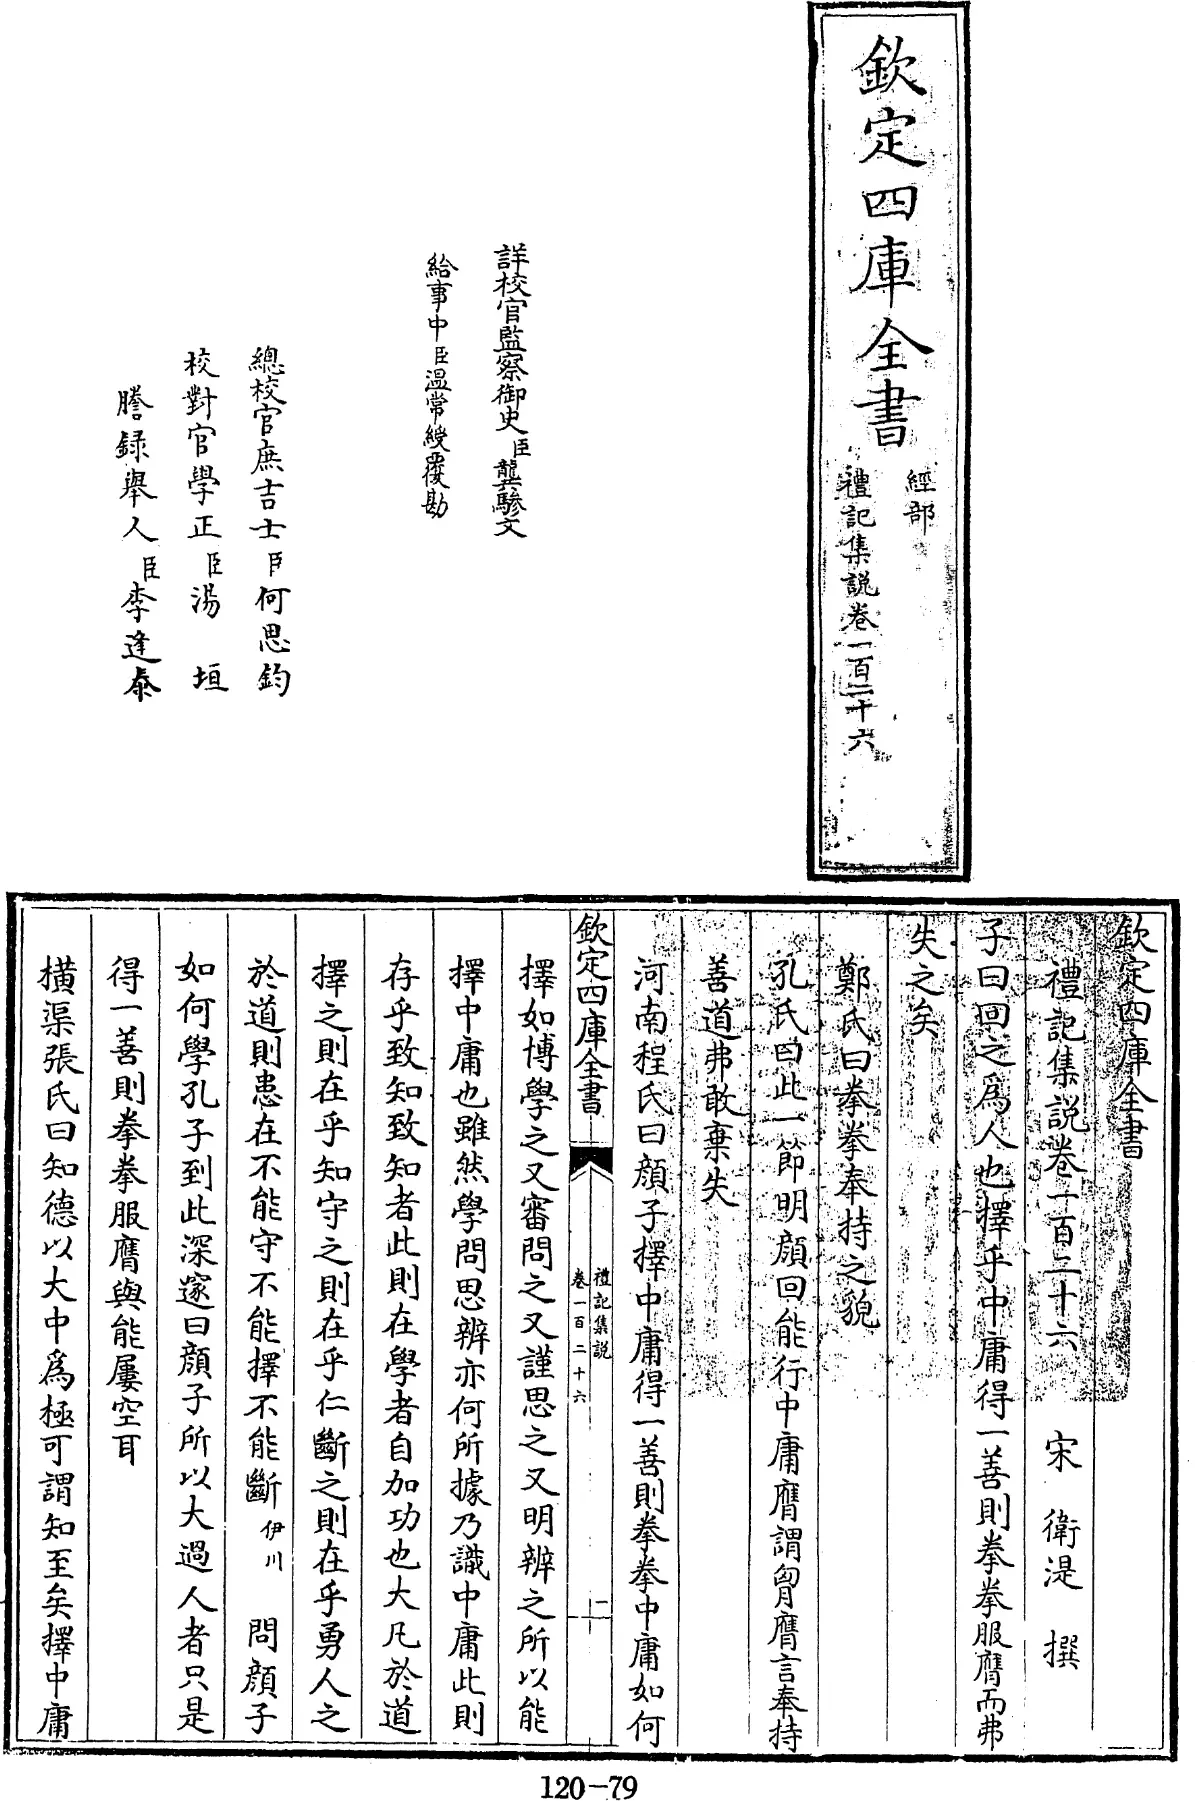 欽定四庫全書
經部
禮記集說卷一百二十六
詳校官監察御史臣龔驂文
給事中臣温常綬覆勘
總校官庶吉士臣何思鈞
校對官學正臣湯垣
謄録舉人臣李逢泰
欽定四庫全書
禮記集說卷一百二十六 宋 衛湜 撰
子曰回之爲人也擇乎中庸得一善則拳拳服膺而弗
失之矣
鄭氏曰拳拳奉持之貌
孔氏曰此一節明顔回能行中庸膺謂胷膺言奉持
善道弗敢棄失
河南程氏曰顔子擇中庸得一善則拳拳中庸如何
欽定四庫全書
禮記集說
卷一百二十六
二
擇如博學之又審問之又謹思之又明辨之所以能
擇中庸也雖然學問思辨亦何所據乃識中庸此則
存乎致知致知者此則在學者自加功也大凡於道
擇之則在乎知守之則在乎仁斷之則在乎勇人之
於道則患在不能守不能擇不能斷伊川 問顔子
如何學孔子到此深邃曰顔子所以大過人者只是
得一善則拳拳服膺與能屢空耳
橫渠張氏曰知德以大中爲極可謂知至矣擇中庸
120-79